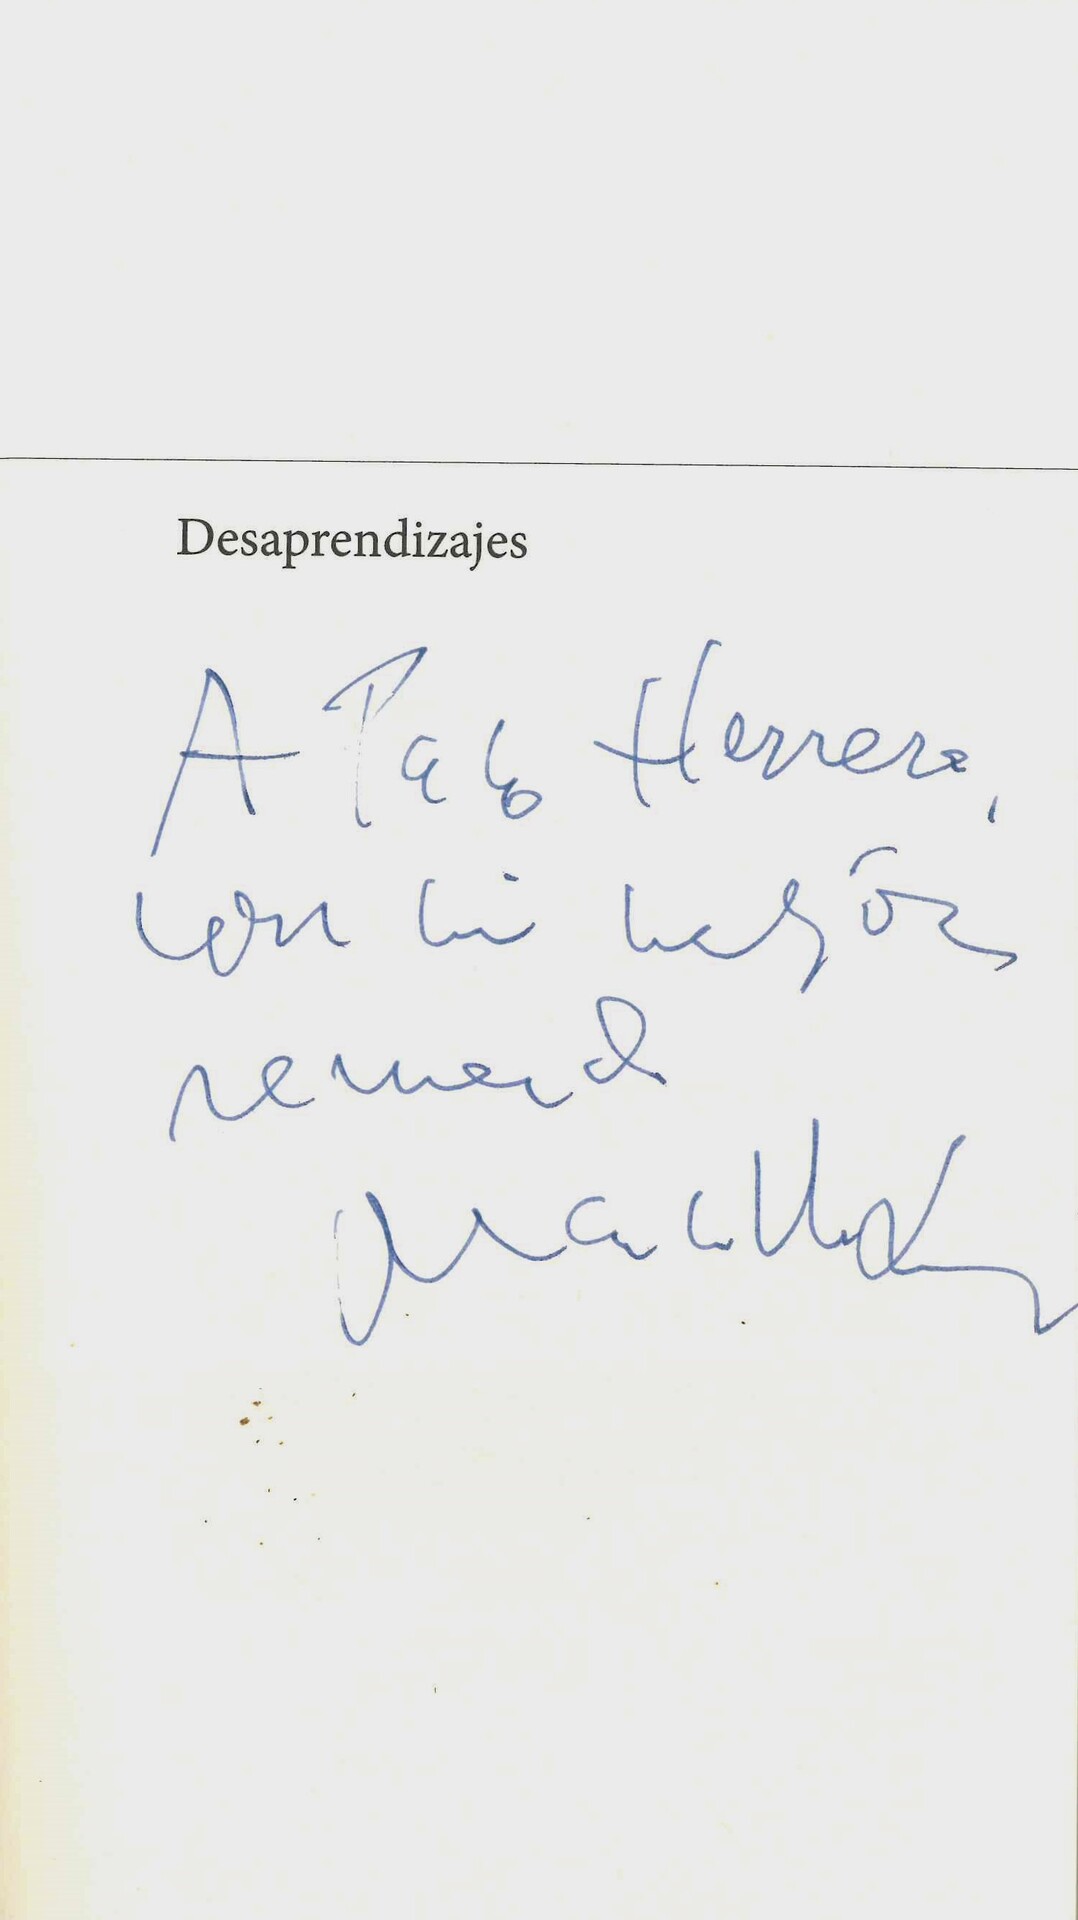 Desaprendizajes
A Pablo Herrera,
con mi mejor
recuerdo